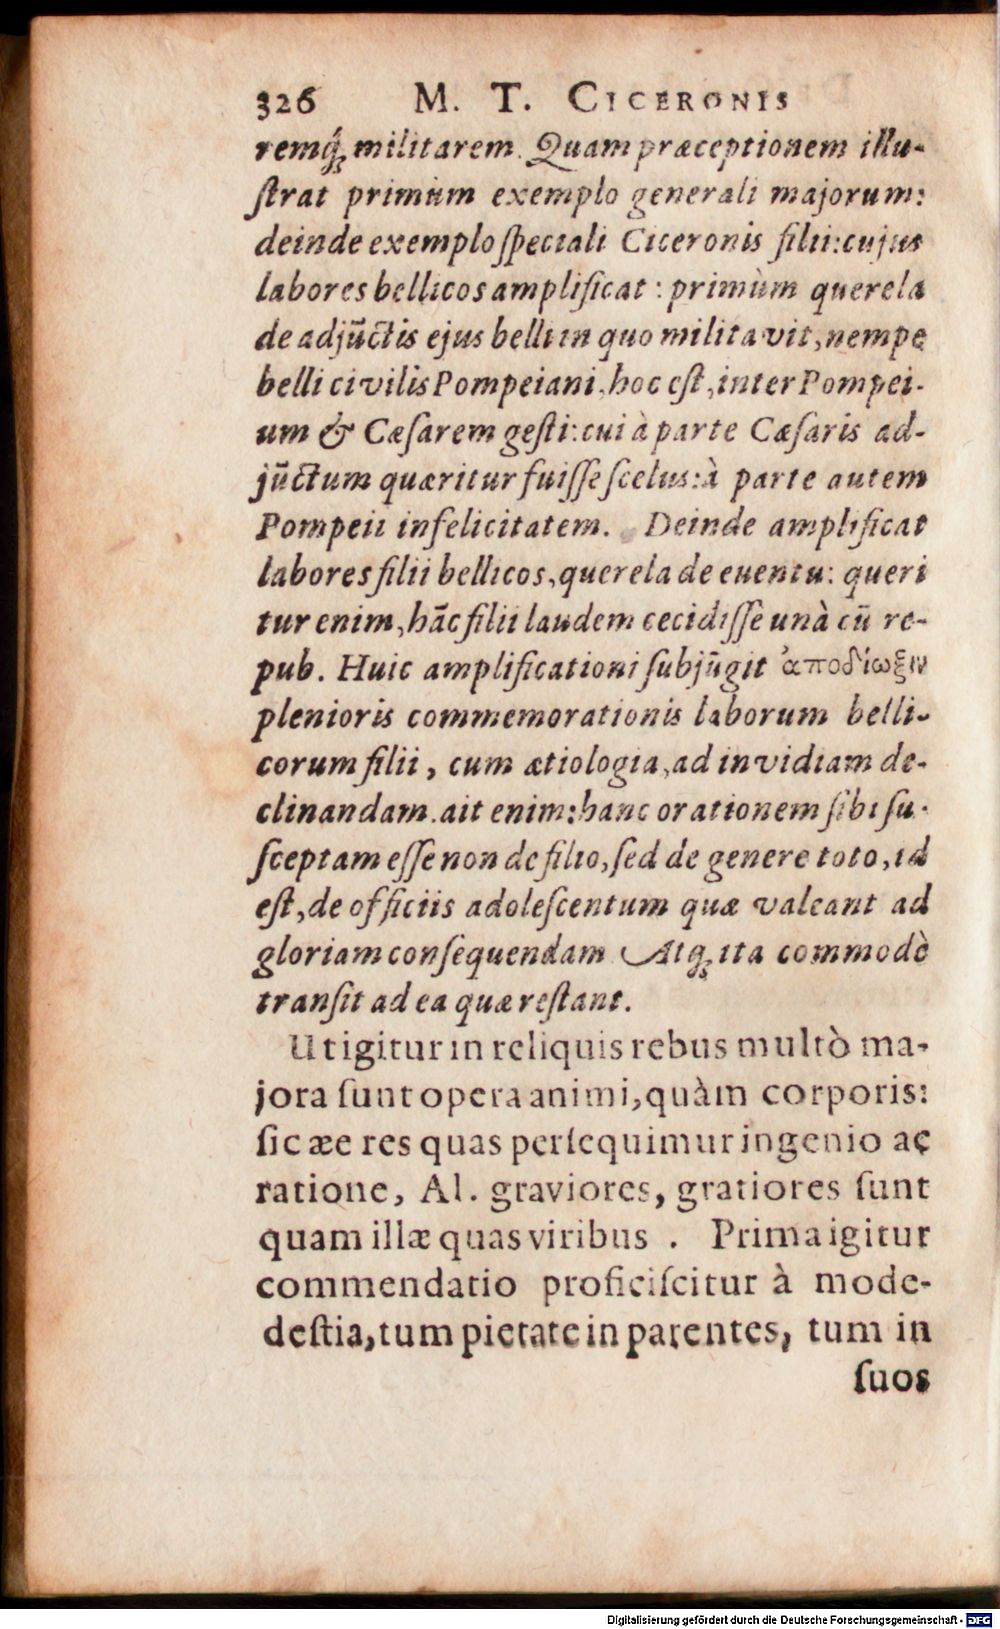 326 M. T. CICERONIS
remq́ꝫ militarem. Quam præceptionem illu-
ſtrat primùm exemplo generali majorum:
deinde exemplo ſpeciali Ciceronis filii: cujus
labores bellicos amplificat : primùm querela
de adjūctis ejus belli in quo militavit, nempe
belli civilis Pompeiani, hoc eſt, inter Pompei-
um & Cæſarem geſti: cui à parte Cæſaris ad-
jūctum quæritur fuiſſe ſcelus: à parte autem
Pompeii infelicitatem. Deinde amplificat
labores filii bellicos, querela de euentu: queri
tur enim, hāc filii laudem cecidiſſe unà cū re-
pub. Huic amplificationi ſubjūgit ἀποδίωξιν
plenioris commemorationis laborum belli-
corum filii, cum ætiologia, ad invidiam de-
clinandam. ait enim: hanc orationem ſibi ſu-
ſceptam eſſe non de filio, ſed de genere toto, id
eſt, de officiis adoleſcentum quæ valeant ad
gloriam conſequendam Atqꝫ ita commodè
tranſit ad ea quæ reſtant.
Ut igitur in reliquis rebus multò ma-
jora ſunt opera animi, quàm corporis:
ſic æe res quas perſequimur ingenio ac
ratione, Al. graviores, gratiores ſunt
quam illæ quas viribus . Prima igitur
commendatio proficiſcitur à mode-
deſtia, tum pietate in parentes, tum in
ſuos
Digitalisierung gefördert durch die Deutsche Forschungsgemeinschaft - DFG